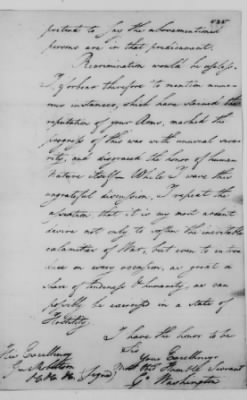 pretend to say the abovementioned
persons are in that predicament.
Recrimination would be useless.
I forbear therefore to mention nume
rous instances, which have stained the
reputation of your Arms, marked the
progress of this war with unusual seve
rity, and disgraced the honor of human
Nature itself. While I wave this
ungrateful discussion, I repeat the
assertion that it is my most ardent
desire not only to soften the inevitable
calamities of War, but even to intro
duce on every occasion, as great a
share of tenderness & humanity, as can
possibly be exercised in a state of
Hostility.
I have the honor to be
Sir
Your Excellency's
Most Obt Humble Servant
(Signed) Go Washington
His Excellency